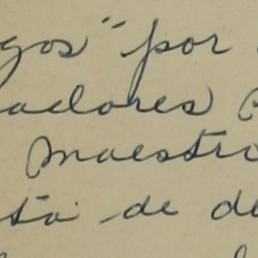 gos" por
adores
maestro
ta de de